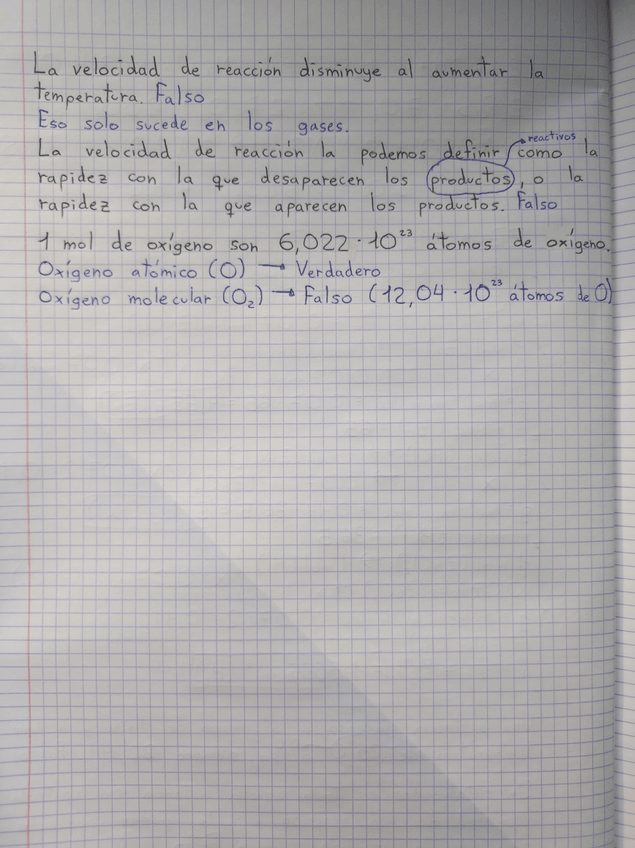 La velocidad de reacción disminuye al aumentar la
temperatura. Falso
Eso solo sucede en los gases.
reactivos
La velocidad de reacción la podemos definir como la
rapidez con la que desaparecen los productos, o la
rapidez con la que aparecen los productos. Falso
1 mol de oxígeno son 6,022 · 10²³ átomos de oxígeno.
Oxígeno atómico (O) → Verdadero
Oxígeno molecular (O₂) → Falso (12,04 · 10²³ átomos de O)